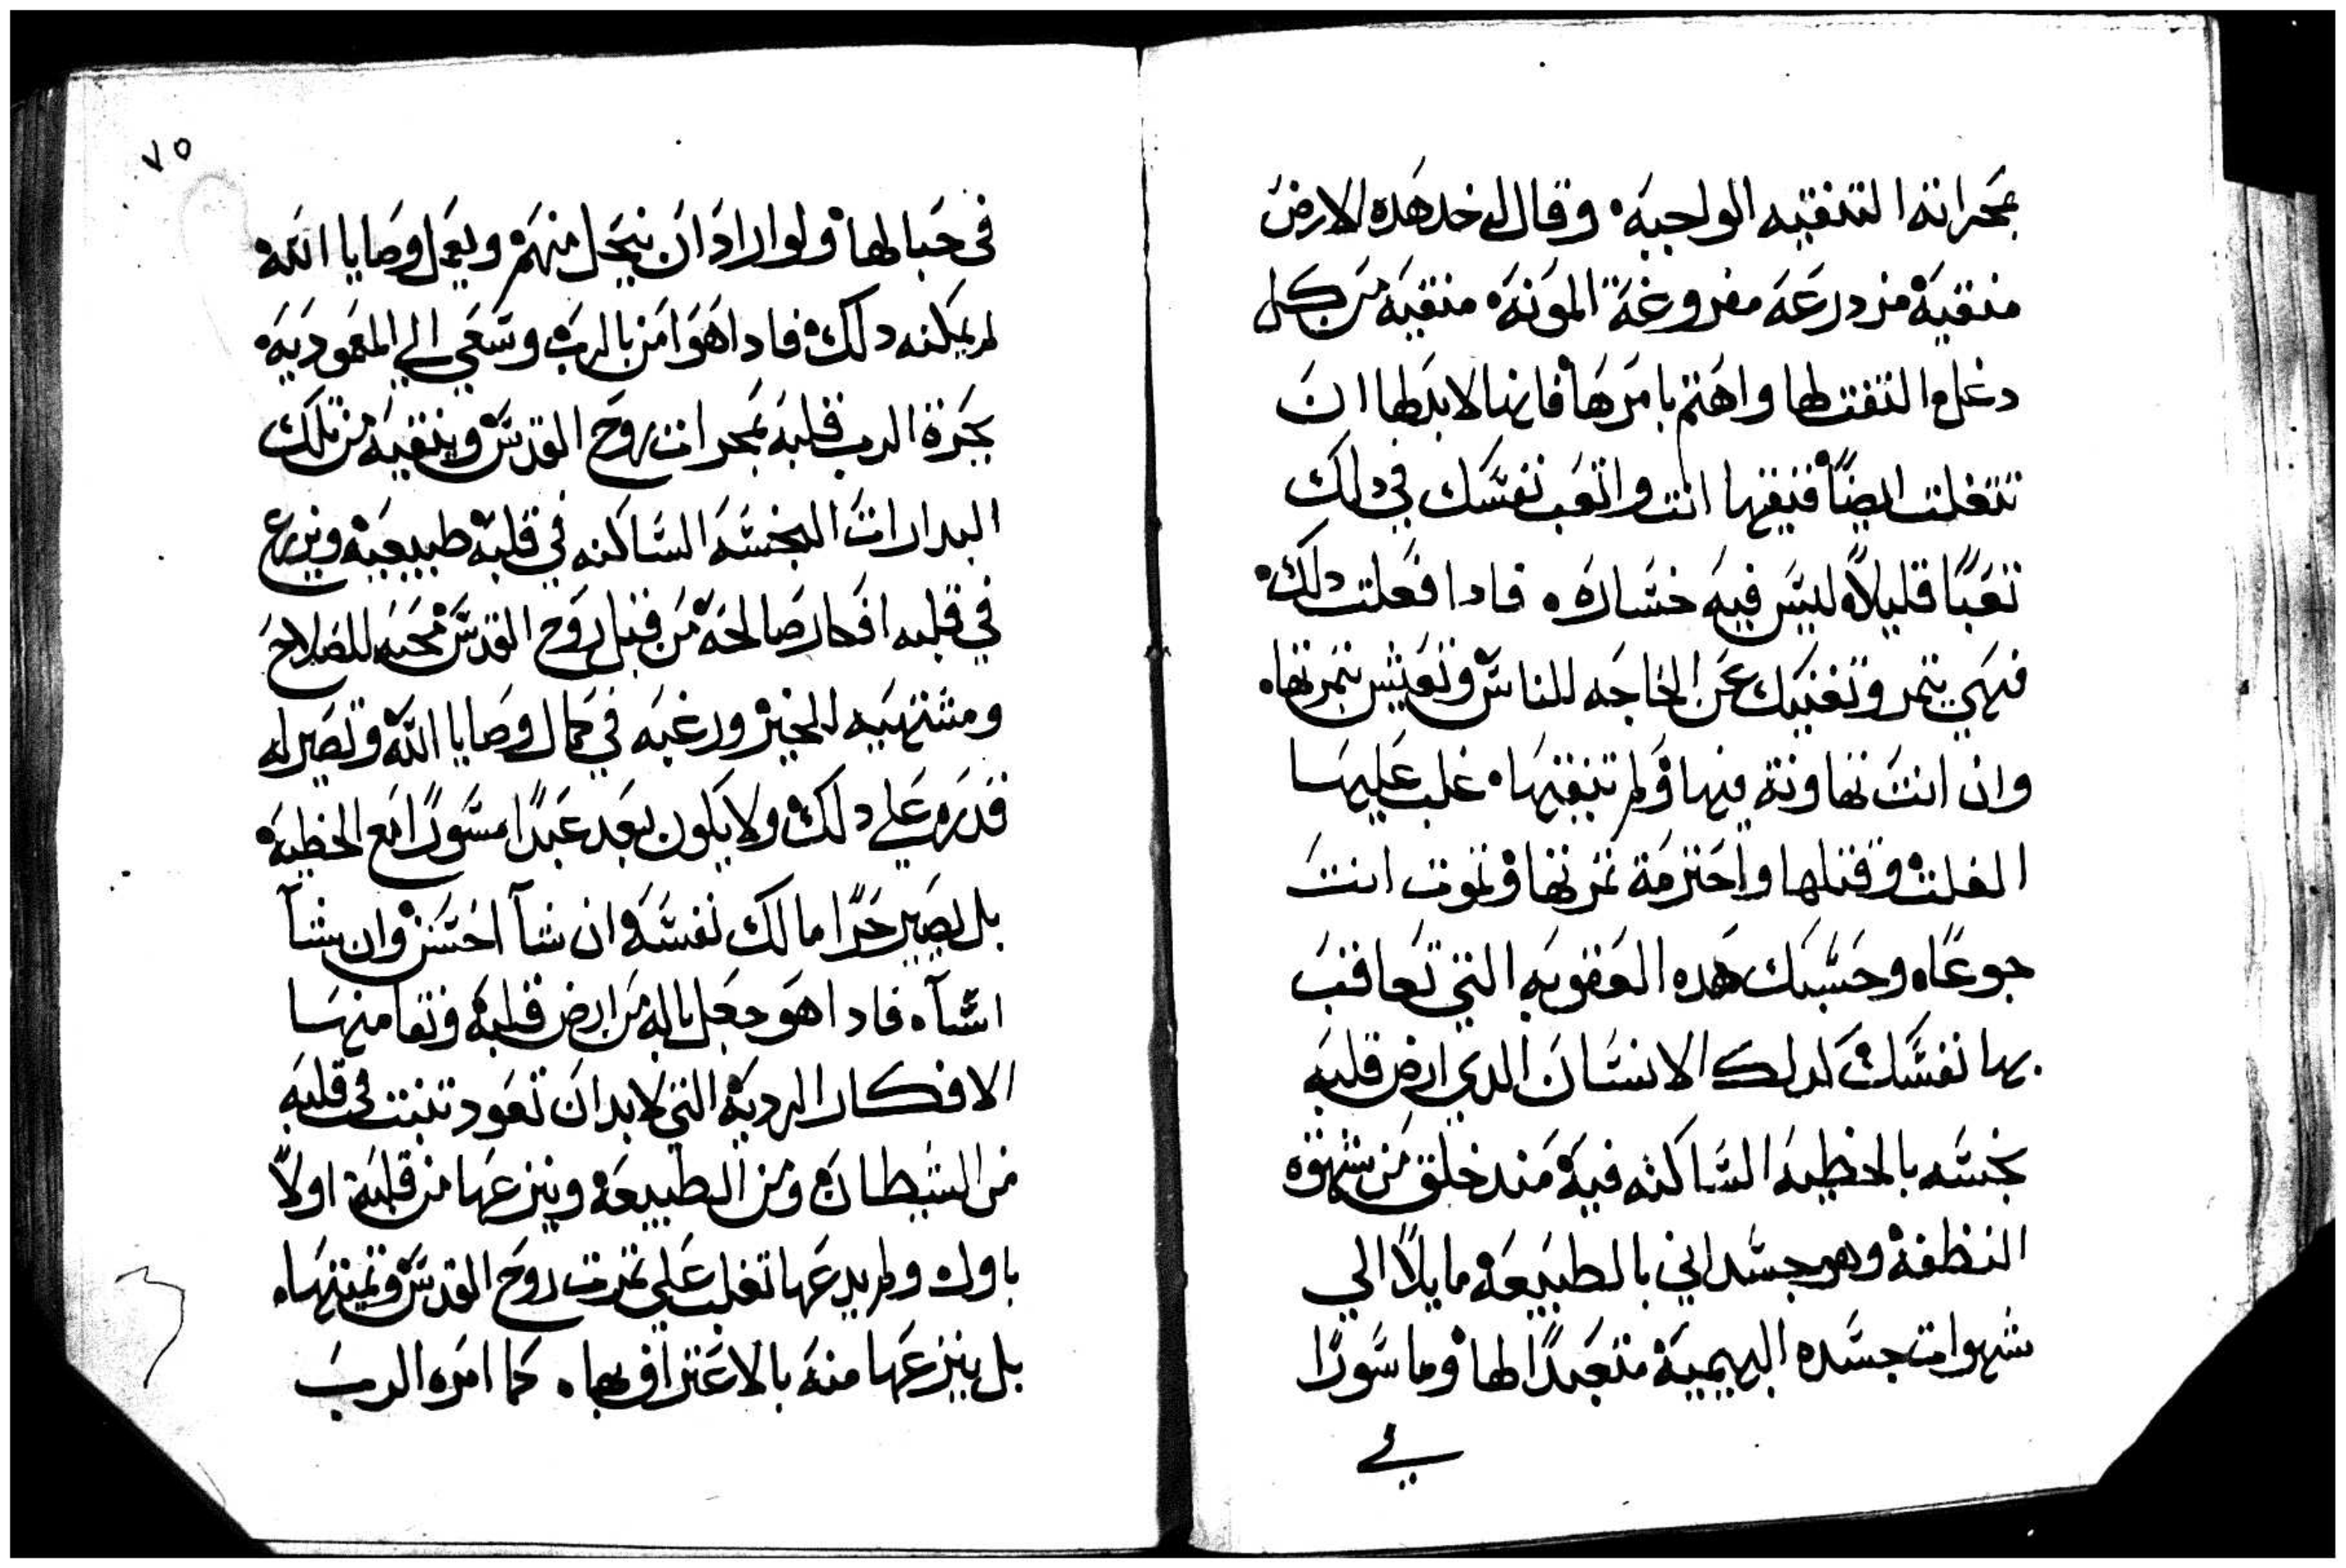 بمحراته التنقيه الواجبه، وقال له خد هده الارض
منقيه مزدرعه مفروغة المونه، منقيه من كل
دغل، التفت لها واهتم بامرها، فانها لابد لها ان
تتغلت ايضًا، فنيقها انت واتعب نفسك في دلك
تعبًا قليلاً، ليس فيه خساره، فادا فعلت دلك،
فهي تتمر وتغنيك عن الحاجه للناس، وتعيش بتمرتها،
وان انت تهاونة فيها ولم تنقيها، غلب عليها
الغلت، وقتلها واحترمة تمرتها، وتموت انت
جوعًا، وحسبك هده العقوبه التي تعاقب
بها نفسك، لدلك الانسان الدي ارض قلبه
نجسه بالخطيه الساكنه فيه مند خلق من شهوه
النظفة، وهو جسداني بالطبيعه، مايلاً الي
شهوات جسده البهيميه، متعبدًا لها، وماسورًا
في
٧٥
في حبالها، ولو اراد ان ينحل منهم ويعمل وصايا الله،
لم يمكنه دلك، فادا هو امن بالرب، وسعي الي المعموديه،
يحرة الرب قلبه بمحرات روح القدس وينقيه من تلك
البدارات النجسه الساكنه في قلبه، طبيعيه، ويزرع
في قلبه افكار صالحه، من قبل روح القدس، محبه للصلاح
ومشتهيه للخير، ورغبه في كمال وصايا الله، وتصير له
قدره علي دلك، ولا يكون بعد عبدًا مسورًا مع الخطيه،
بل يصير حرًا مالك نفسه، ان شآ احسن، وان شآ
اسآ، فادا هو جعل باله من ارض قلبه، ونقا منها
الافكار الرديه، التي لابد ان تعود تنبت في قلبه
من الشيطان، ومن الطبيعه، وينزعها من قلبه، اولاً
باول، ولم يدعها تغلب علي تمرت روح القدس، وتميتها،
بل ينزعها منه بالاعتراف بها، كما امره الرب